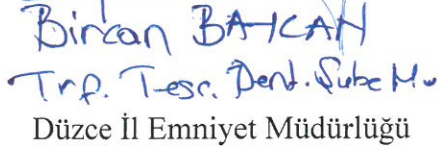 Bircan BAYCAN
Trf. Tesc. Dent. Şube Mv
Düzce İl Emniyet Müdürlüğü